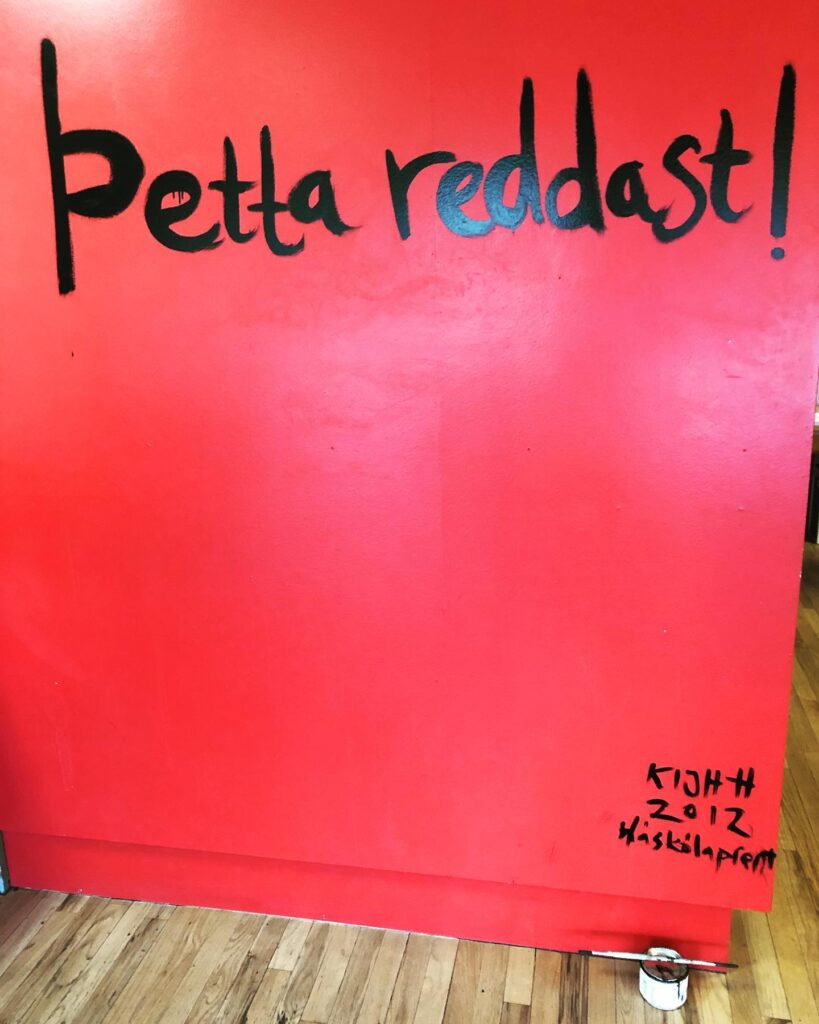 Þetta reddast!
KIJHH
2012
Háskólaprent